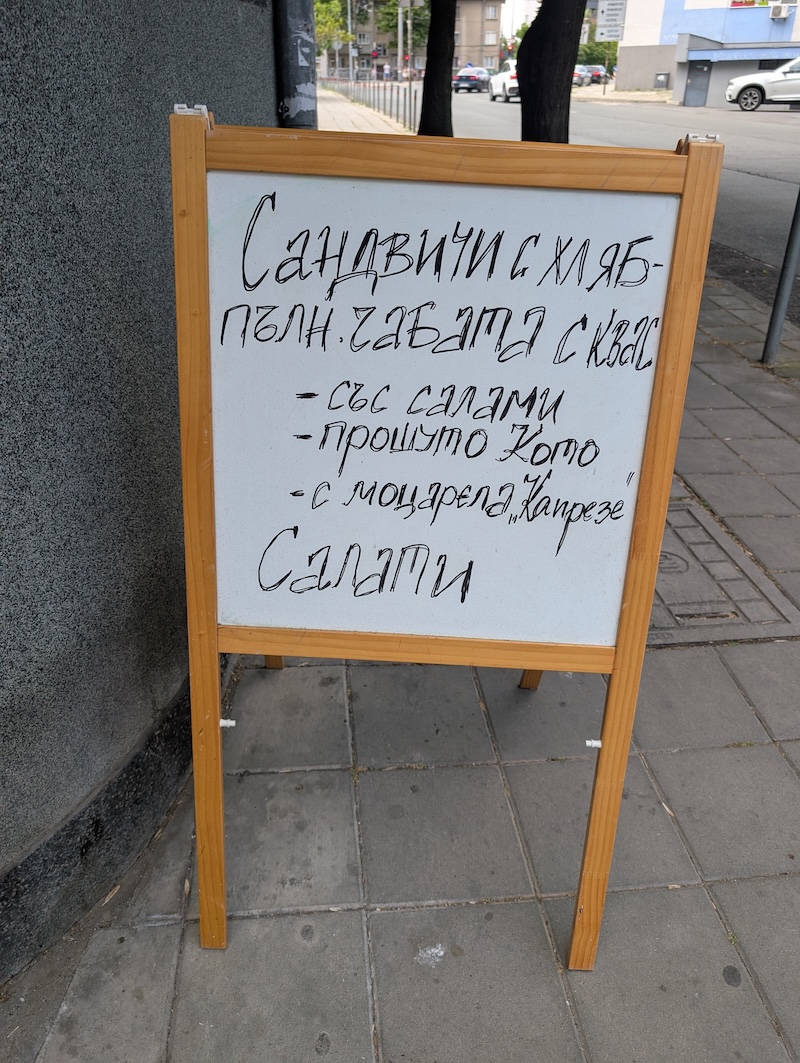 Сандвичи с хляб-
пълн. чабата с квас
- със салами
- прошуто Кото
- с моцарела „Капрезе"
Салати